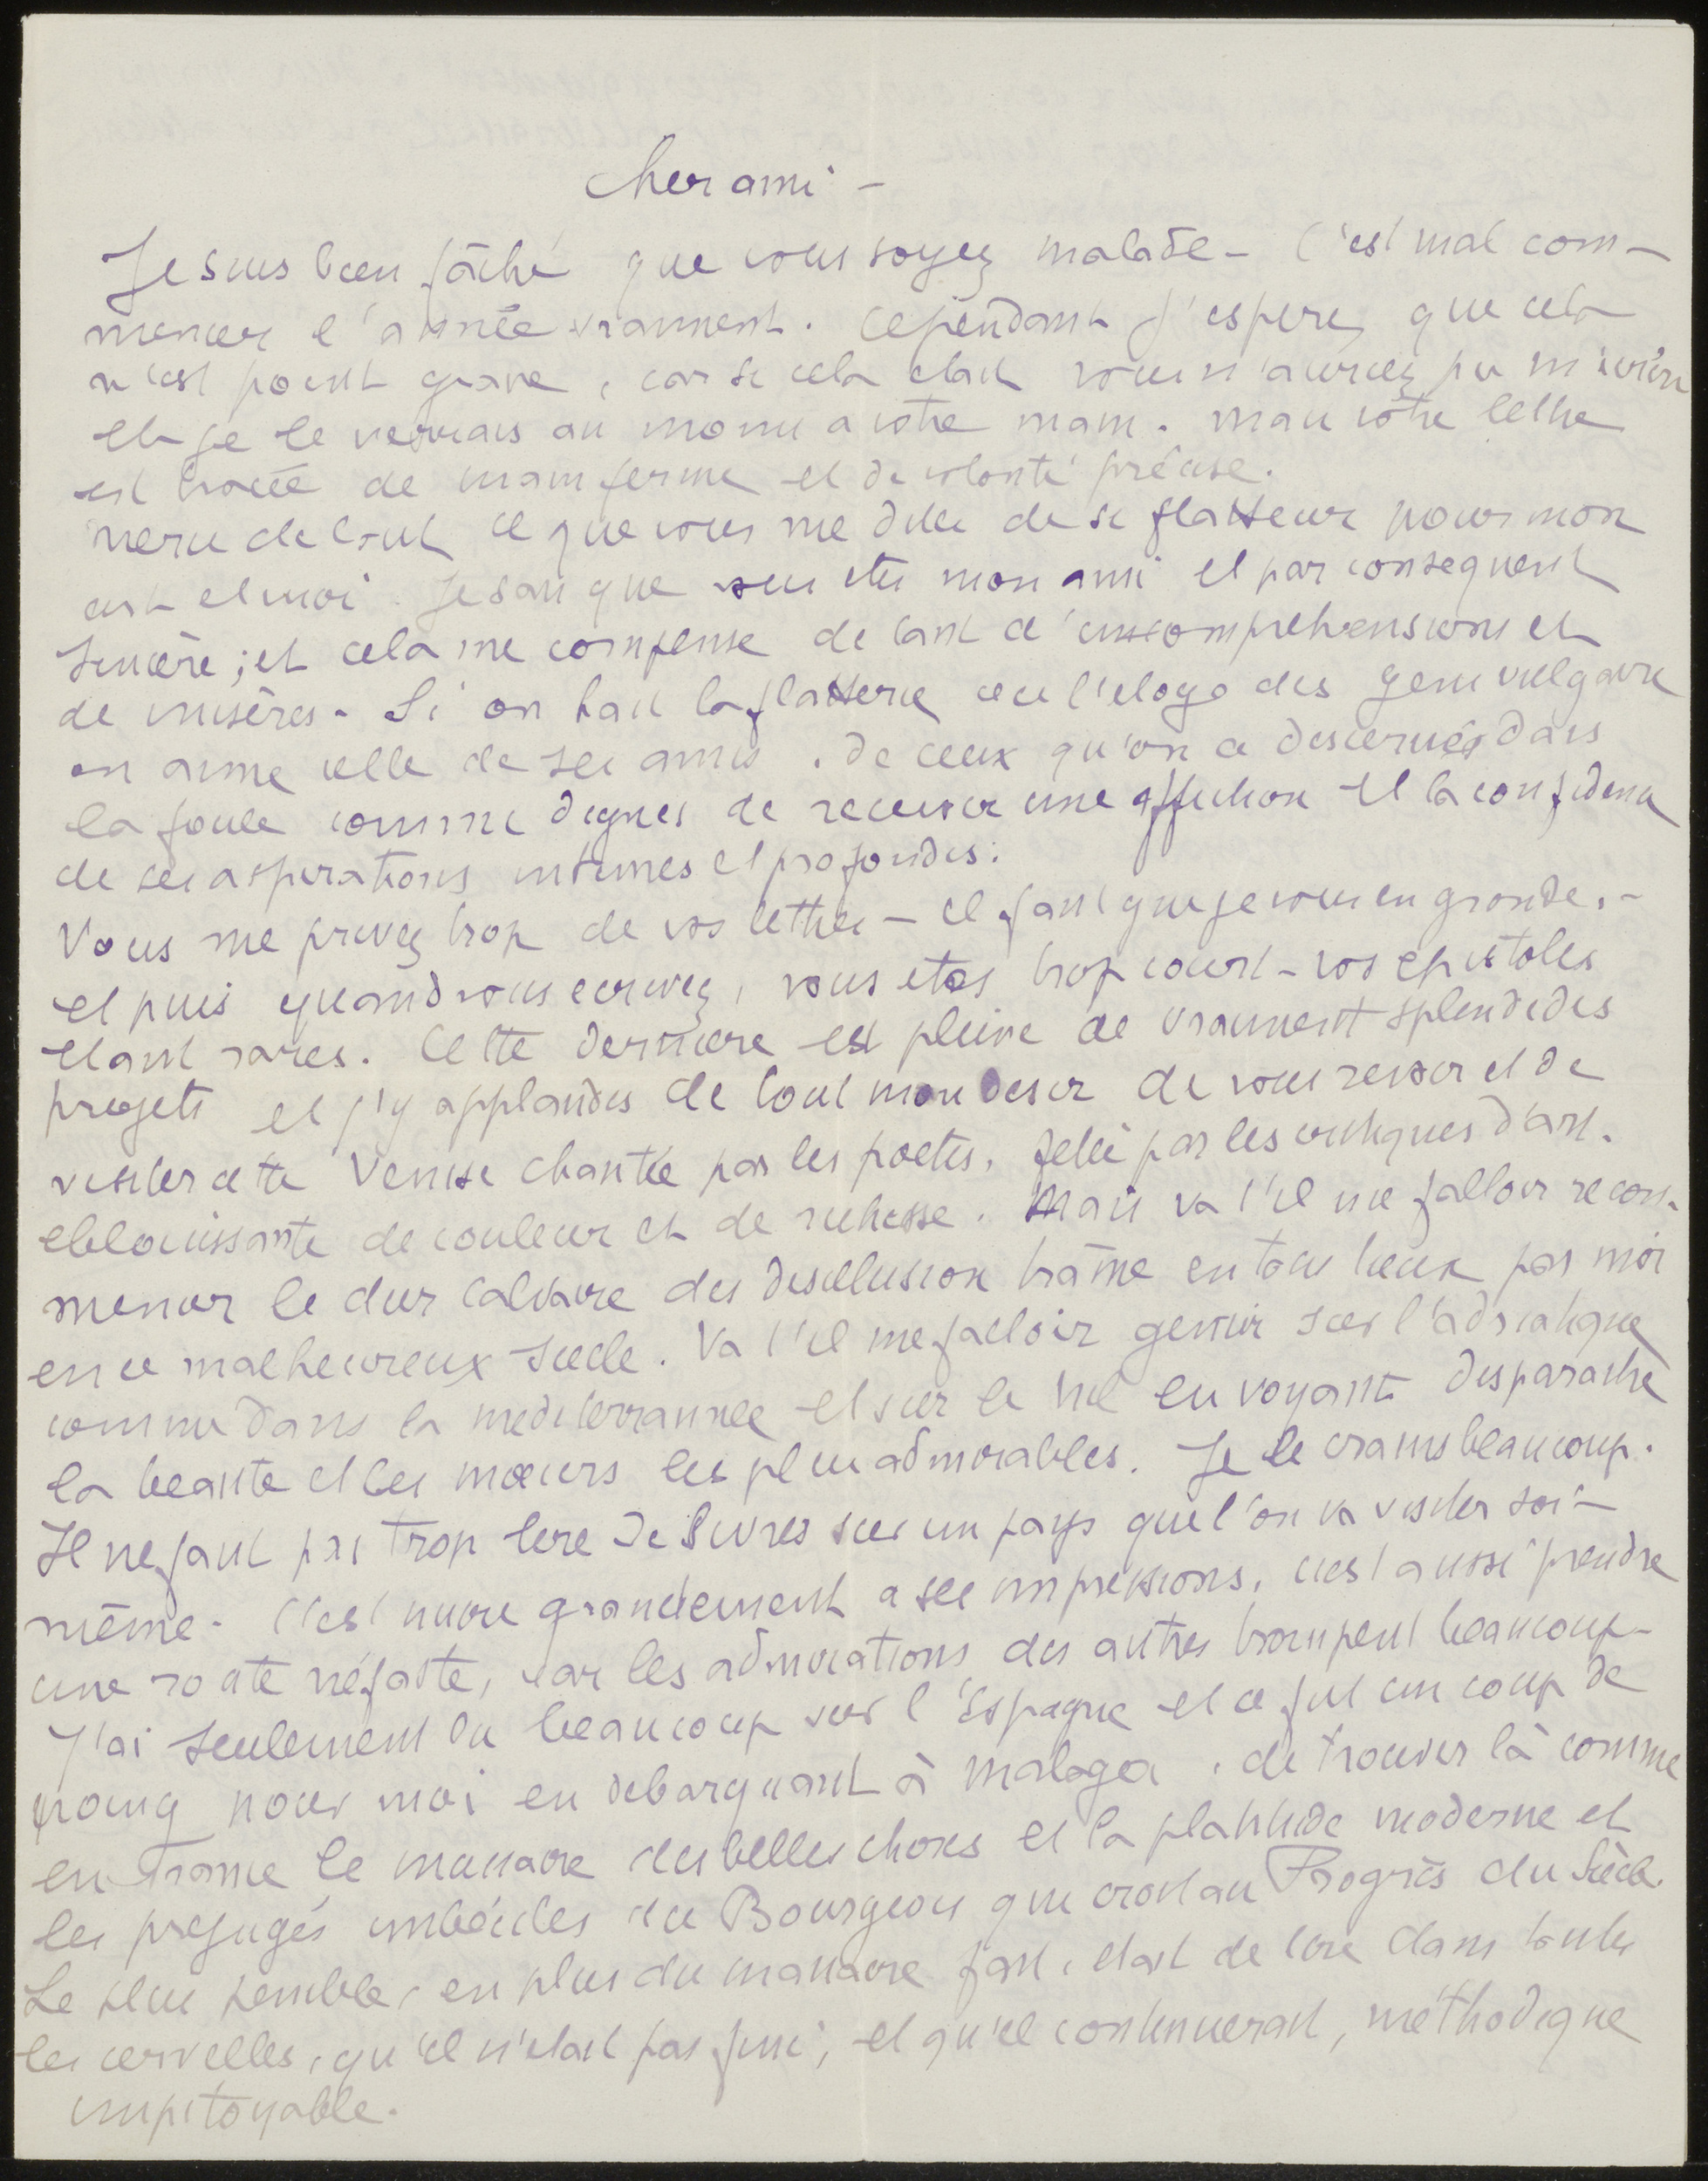 Cher ami -
Je suis bien fâché que vous soyez malade - C'est mal com-
mencer l'année vraiment. Cependant j'espere, que cela
n'est point grave, car si cela etait vous n'auriez pu m'ecrire
et je le verrais au moins a votre main. Mais votre lettre
est tracée de main ferme et de volonté précise.
merci de tout ce que vous me dites de si flatteur pour mon
art et moi. Je sais que vous etes mon ami et par consequent
sincère ; et cela me compense de tant d'incomprehensions et
de misères - Si on hait la flatterie ou l'eloge des gens vulgaire
on aime celle de ses amis. de ceux qu'on a discernés dans
la foule comme dignes de recevoir une affection et la confidence
de ses aspirations intimes et profondes.
Vous me privez trop de vos lettres - il faut que je vous en gronde. -
et puis quand vous ecrivez, vous etes trop court - vos epistoles
etant rares. Cette derniere est pleine de vraiment splendides
projets et j'y applaudis de tout mon desir de vous revoir et de
visiter cette Venise chantée par les poetes, fetée par les critiques d'art.
eblouissante de couleur et de richesse. Mais va t'il me falloir recom-
mencer le dur calvaire des desillusion trainé en tous lieux par moi
en ce malheureux siecle. Va t'il me falloir gemir sur l'adriatique
comme dans la mediterrannée et sur le nil en voyant disparaitre
la beauté et les mœurs les plus admirables. Je le crains beaucoup.
Il ne faut pas trop lire de livres sur un pays que l'on va visiter soi-
même - C'est nuire grandement a ses impressions, c'est aussi prendre
une route néfaste, car les admirations des autres trompent beaucoup -
J'ai seulement lu beaucoup sur l'Espagne et ce fut un coup de
poing pour moi en debarquant à Malaga, de trouver là comme
en france le massacre des belles choses et la platitude moderne et
les prejugés imbéciles du Bourgeois qui croit au Progrès du Siècle.
Le plus penible, en plus du massacre fait, etait de lire dans toutes
les cervelles, qu'il n'etait pas fini, et qu'il continuerait, méthodique
impitoyable.